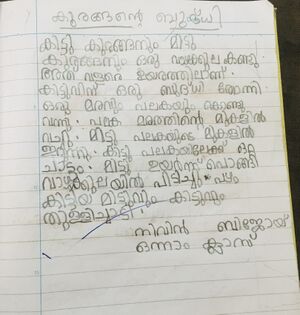 കുരങ്ങന്റെ ബുദ്ധി
കിട്ടു കുരങ്ങനും മിട്ടു
കുരങ്ങനും ഒരു വാഴക്കുല കണ്ടു
അത് വളരെ ഉയരത്തിലാണ്.
കിട്ടുവിന് ഒരു ബുദ്ധി തോന്നി.
ഒരു മരവും പലകയും കൊണ്ടു
വന്നു. പലക മരത്തിന്റെ മുകളിൽ
വച്ചു. മിട്ടു പലകയുടെ മുകളിൽ
ഇരുന്നു. കിട്ടു പലകയിലേക്ക് ഒറ്റ
ചാട്ടം. മിട്ടു ഉയർന്ന് പൊങ്ങി
വാഴക്കുലയിൽ പിടിച്ചു. പഴം
കിട്ടിയ മിട്ടുവും കിട്ടുവും
തുള്ളിച്ചാടി.
നിവിൻ ബിജോയ്
ഒന്നാം ക്ലാസ്സ്